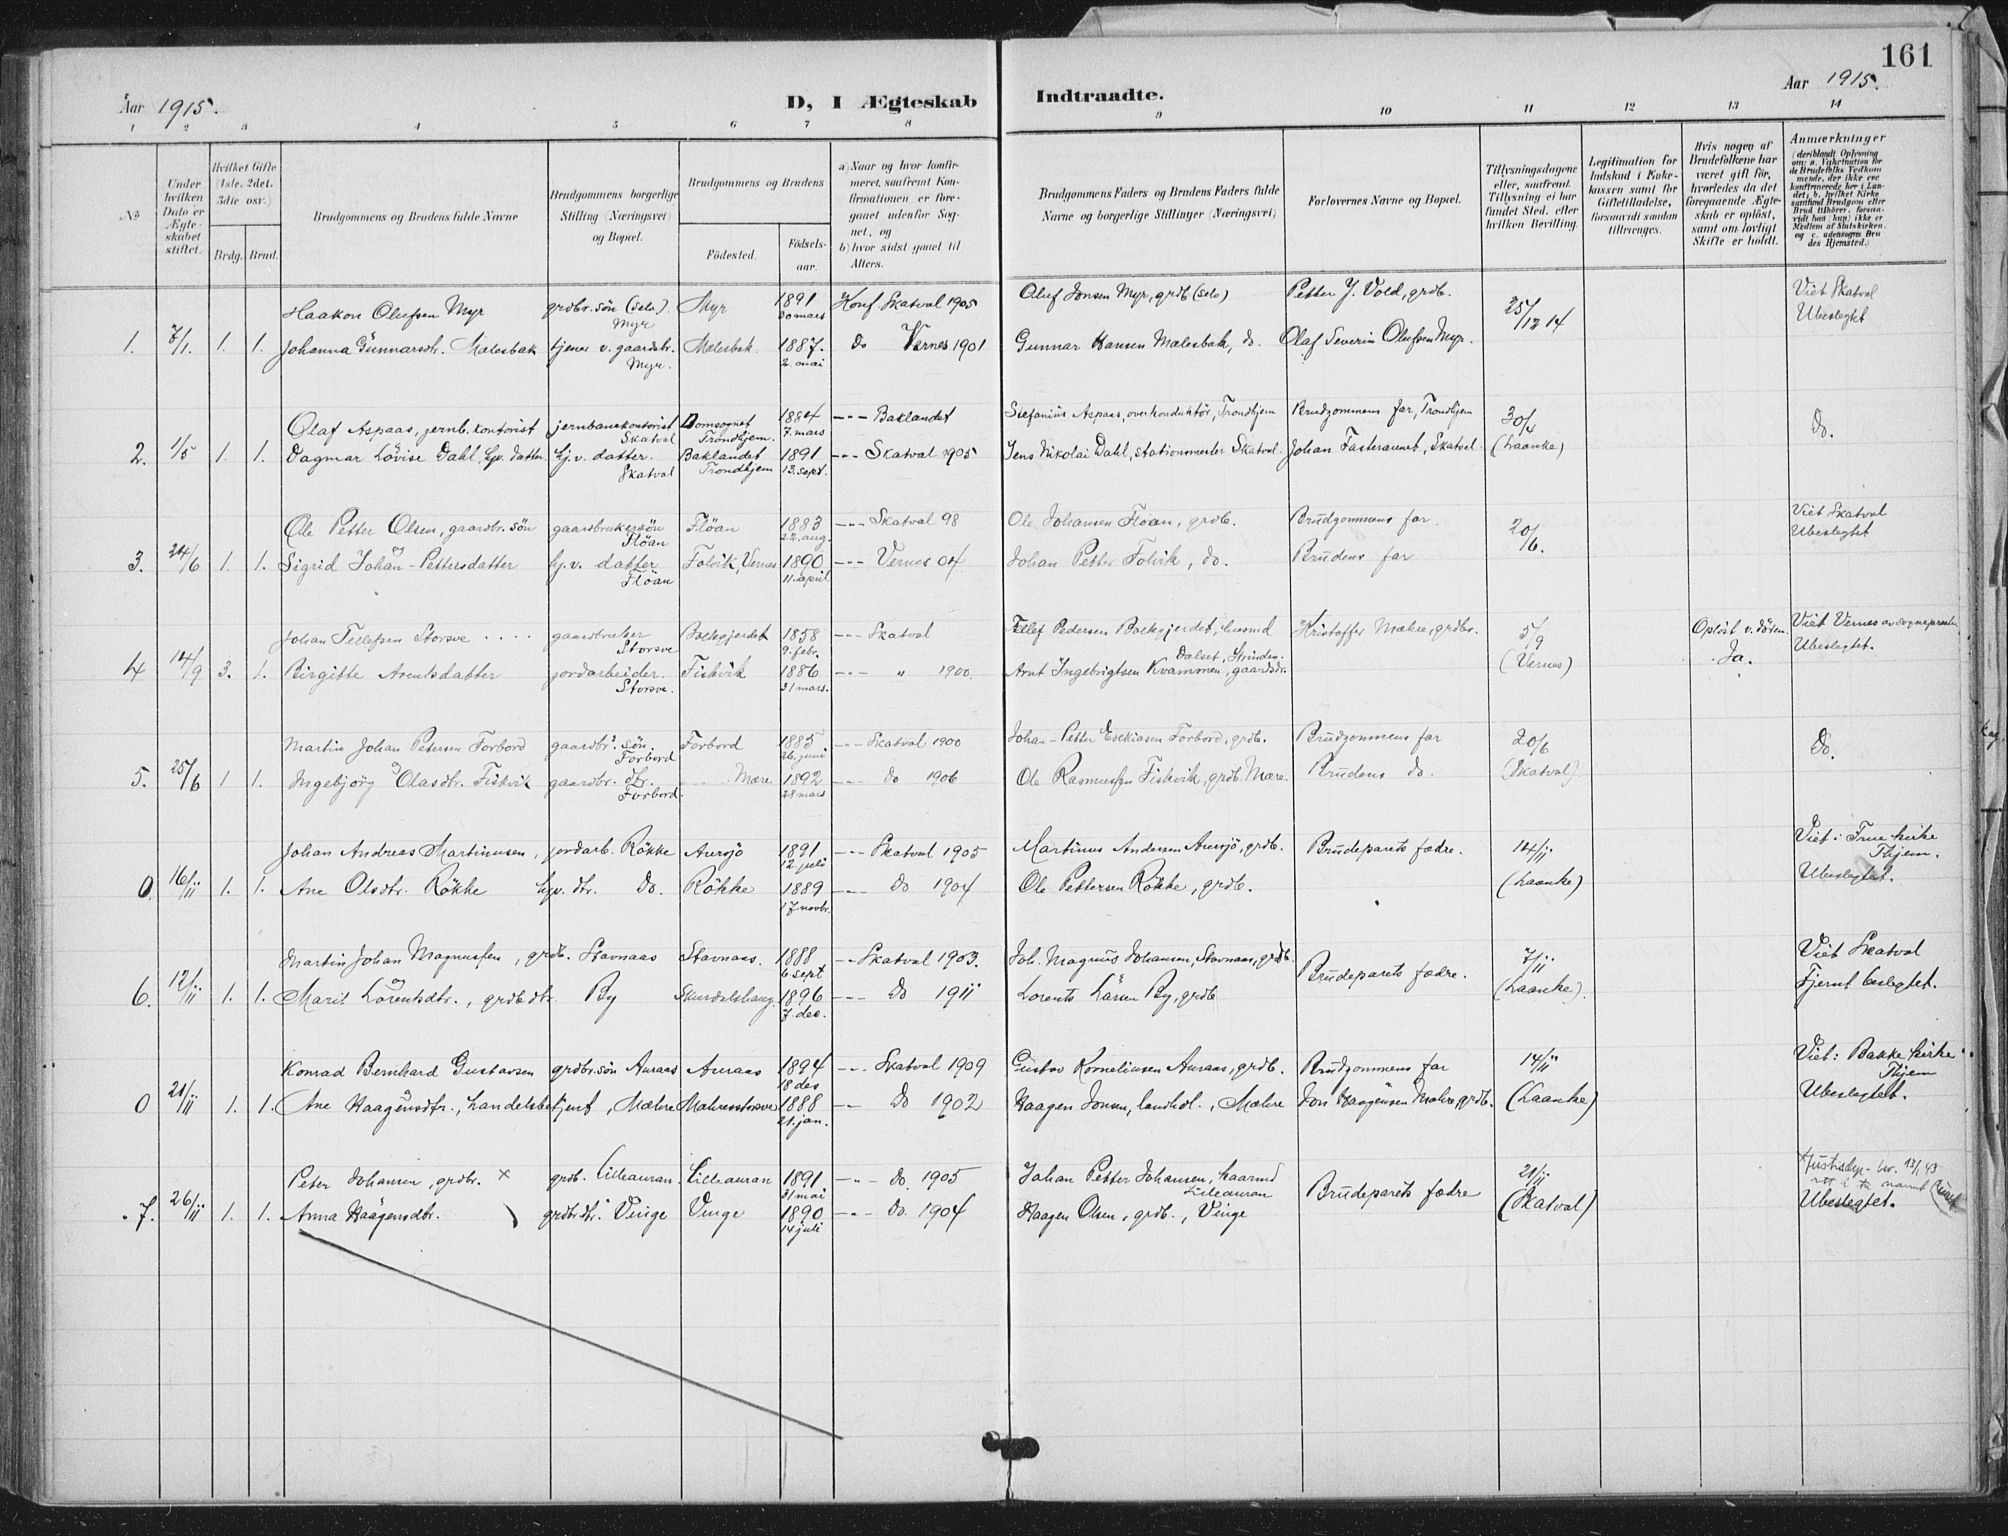 161
Aar 1915.
D, I Ægteskab
Indtraadte.
Aar 1915.
1 2 3 4 5 6 7 8 9 10 11 12 13 14
No
Under hvilken Dato er Ægteskabet stiftet.
Hvilket Gifte (1ste, 2det, 3die osv.)
Brdg. Brud.
Brudgommens og Brudens fulde Navne
Brudgommens borgerlige Stilling (Næringsvei) og Bopæl.
Brudgommens og Brudens
Födested.
Födselsaar.
a) Naar og hvor konfirmeret, saafremt Konfirmationen er foregaaet udenfor Sognet, og
b) hvor sidst gaaet til Alters.
Brudgommens Faders og Brudens Faders fulde Navne og borgerlige Stillinger (Næringsvei)
Forlovernes Navne og Bopæl.
Tillysningsdagene eller, saafremt Tillysning ei har fundet Sted, efter hvilken Bevilling.
Legitimation for Indskud i Enkekassen samt for Giftetilladelse, forsaavidt saadan tiltrænges.
Hvis nogen af Brudefolkene har været gift för, hvorledes da det foregaaende Ægteskab er oplöst, samt om lovligt Skifte er holdt.
Anmærkninger
Haakon Olufsen Myr grdbr. sön (selv). Myr Myr 1891 30 mars Konf. Skatval 1905 Oluf Jonsen Myr, grdb (selv) Petter J. Vold, grdb. 25/12 14 Viet Skatval Ubeslegtet
1. 7/1. 1. 1. Johanna Gunnarsdtr. Mælesbak tjener v. gaardsbr. Myr. Mælesbak. 1887. 2. mai do Vernes 1901 Gunnar Hansen Malesbak, do. Olaf Severin Olufsen Myr.
Olaf Aspaas, jernb. kontorist jernbanekontorist Skatval Domsognet Trondhjem. 1884 7. mars --- Baklandet Stefanius Aspaas, overkonduktör, Trondhjem Brudgommens far, Trondhjem 30/4 do.
2. 1/5 1. 1. Dagmar Lövise Dahl, hjv. datter hj. v. datter. Skatval Baklandet Trondhjem 1891 13. sept. --- Skatval 1905 Jens Nikolai Dahl, stationsmester Skatval. Johan Fasteraunet, Skatval. (Laanke)
Ole Petter Olsen, gaardbr. sön gaardbrukersön Flöan Flöan 1883 22. aug. --- Skatval 98 Ole Johansen Flöan, grdb. Brudgommens far. 20/6. Viet Skatval Ubeslegtet
3. 24/6 1. 1. Sigrid Johan-Pettersdatter hj. v. datter Flöan Folvik, Vernes 1890 11. april --- Vernes 04 Johan Petter Folvik, do. Brudens far
Johan Tellefsen Storsve gaardbruker Storsve Bækgjerdet 1858 9. febr. --- Skatval Tellef Pedersen Bækgjerdet, husmd Kristoffer Mæhre, grdbr. 5/9 Oplöst v. döden. Viet Vernes av sognepresten
4 14/9 3. 1. Birgitte Arentsdatter jordarbeider. Storsve. Fiskvik 1886 31 mars. --- " 1900. Arnt Ingebrigtsen Kvammen, gaardsbr. (Vernes) Ja. Ubeslegtet.
Martin Johan Petersen Forbord gaardbr. sön. Forbord Forbord 1885 26. juni --- Skatval 1900 Johan-Petter Esekiasen Forbord, grdb. Brudgommens far 20/6 do.
5. 25/6 1 1. Ingebjörg Olasdtr. Fiskvik gaardbr. dtr. Forbord. Mære 1892 28 mars --- do 1906 Ole Rasmussen Fiskvik, grdb. Mære. Brudens do. (Skatval).
Johan Andreas Martinusen, jordarb. Rökke Auesjö 1891 12. juli --- Skatval 1905 Martinus Andersen Auesjö, grdb. Brudeparets fædre. 14/11 Viet i Frue kirke Thjem.
0. 16/11 1. 1. Ane Olsdtr. Rökke hjv. dtr. do. Rökke 1889 17. novbr. --- do 1904 Ole Pettersen Rökke, grdb. (Laanke) Ubeslegtet.
Martin Johan Magnussen, grdb. Stavnaas Stavnaas. 1888 6 sept --- Skatval 1903. Joh. Magnus Johansen, Stavnaas, grdb. Brudeparets fædre. 7/11 Viet Skatval
6. 12/11 1. 1. Marit Lorentsdtr., grdb. dtr. By Skurdalshaug. 1896 7. dec. --- do 1911 Lorents Larsen By, grdb (Laanke). Fjernt beslegtet.
Konrad Bernhard Gustavsen grdbr. sön Auraas Auraas 1894 18 des -- Skatval 1909 Gustav Korneliusen Auraas, grdb. Brudgommens far 14/11 Viet: Bakke kirke Thjem
0 21/11 1. 1. Ane Haagensdtr., handelsbetjent, Mæhre Mæhresstorsve 1888 21. jan. -- do 1902 Haagen Jonsen, landhdl., Mæhre Jon Haagensen Mæhre, grdb. (Laanke) Ubeslegtet.
Peter Johansen, grdbr. x grdb. Lilleauran. Lilleauran 1891 31 mai --- do. 1905 Johan Petter Johansen, haarmd Lilleauran Brudeparets fædre 21/11
7. 26/11 1. 1. Anna Haagensdtr. grdbr. dtr. Vinge Vinge 1890 14 juli --- do. 1904 Haagen Olsen, grdb., Vinge (Skatval) Ubeslegtet.